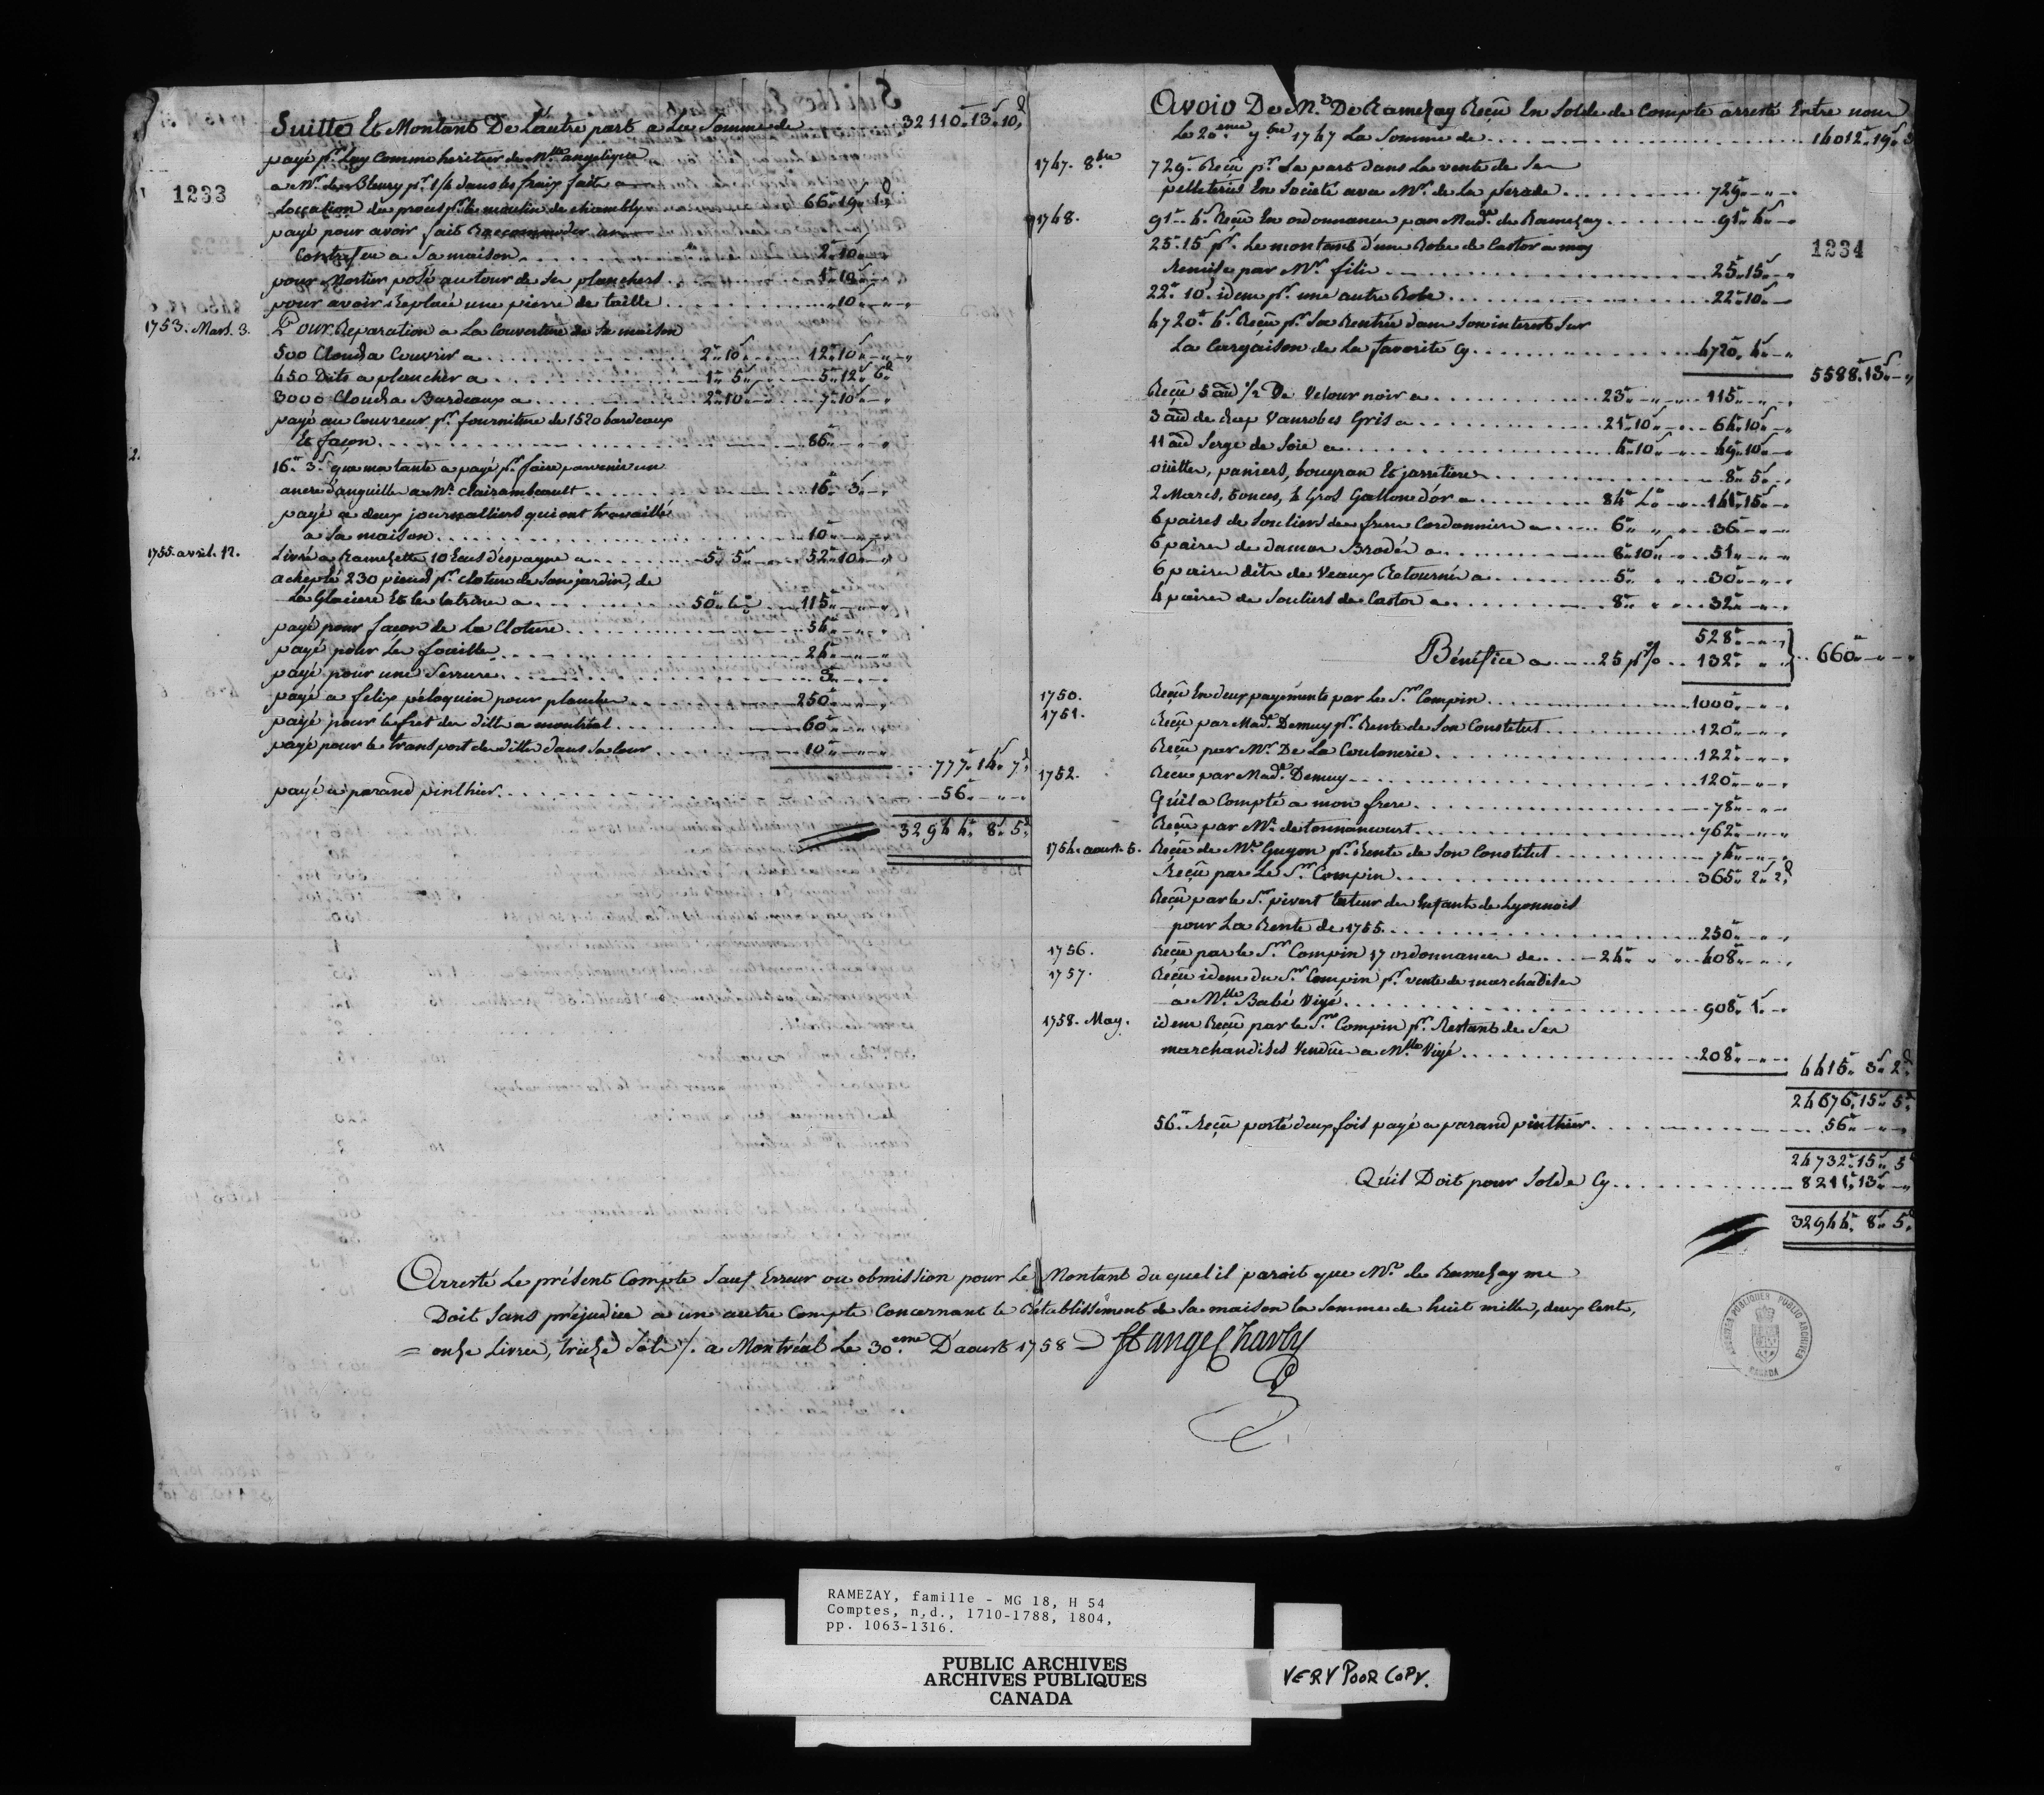 1233
Suitte Et Montant De L'autre part a La Somme de 32110" 13ˢ 10ᵈ
payé pʳ Luy Comme heritier de Mˡˡᵉ angelique
a Mʳ de Bleury pʳ 1/4 dans les fraix faits a
Loccation du procès pʳ le moulin de chambly 66" 19ˢ 1ᵈ
payé pour avoir fait Raccommoder un
Contrefeu a Sa maison 2" 10
pour Mortier posé autour de Ses planchers 1" 10
pour avoir Replacé une pierre de taille " 10
1753. Mars. 3. Pour Reparation a La Couverture de Sa maison
500 Clouds a Couvrir a 2" 10 12" 10
450 Dits a plancher a 1" 5 5" 12ˢ 6ᵈ
3000 Clouds a Bardeaux a 2" 10 7" 10
payé au Couvreur pʳ fourniture de 1520 bardeaux
Et façon 86"
16" 3ˢ que ma tante a payé pʳ faire parvenir un
ancre d'anguille a Mʳ Clairambeault 16" 3ˢ
payé a deux journalliers qui ont travaillé
a Sa maison 10"
1755. avril. 12. Livré a Ramezette 10 Ecus d'espagne a 5" 5ˢ 52" 10
achepté 230 pieux pʳ cloture de Son jardin, de
La Glaciere Et les latrines a 50" 115"
payé pour façon de La Cloture 54"
payé pour Les fouilles 24"
payé pour une Serrure 3"
payé a felix péloquin pour planches 250"
payé pour le fret des dittes a montréal 60"
payé pour le transport des dittes dans Sa Cour 10"
777" 14ˢ 7ᵈ
payé a parand pinthier 56"
32944" 8ˢ 5ᵈ
1234
Avoir De Mʳ De Ramezay Reçû En Solde de Compte arresté Entre nous
Le 20ᵉᵐᵉ 9ᵇʳᵉ 1747 La Somme de 14012" 19ˢ 3
1747. 8ᵇʳᵉ 729" Reçû pʳ Sa part dans La vente de Ses
pelleteries En Societé avec Mʳ de La perade 729"
1748. 91" 4ˢ Reçû En ordonnances par Madᵉ de Ramezay 91" 4ˢ
25" 15ˢ pʳ Le montant d'une Robe de Castor a moy
Remise par Mʳ filis 25" 15ˢ
22" 10ˢ idem pʳ une autre Robe 22" 10ˢ
4720" 4ˢ Reçû pʳ Sa Rentrée dans Son interest Sur
La Cargaison de La favorite Cy 4720" 4ˢ
5588" 13ˢ
Reçû 5 au 1/2 De Velour noir a 23" 115"
3 au de Vanrobes Gris a 21" 10 64" 10
11 au Serge de Soie a 4" 10 49" 10
oüittes, paniers, bougran Et jarretieres 8" 5
2 Marcs, 5 onces, 4 Gros Gallons d'or a 84" 141" 15
6 paires de Souliers du frere Cordonnier a 6" 36"
6 paires de damas Brodés a 8" 10 51"
6 paires dits de Veaux Retournés a 5" 30"
4 paires de Souliers de Castor a 8" 32"
528"
Bénéfice a 25 pʳ% 132" 660"
1750. Reçû En deux payements par le Sʳ Compin 1000"
1751. Reçû par Madᵉ Demuy pʳ Rente de Son Constitut 120"
Reçû par Mʳ De La Coulonerie 122"
1752. Reçu par Madᵉ Demuy 120"
Qu'il a Compté a mon frere 78"
Reçû par Mʳ de tonnancourt 762"
1754. aoust. 5. Reçû de Mʳ Guyon pʳ Rente de Son Constitut 74"
Reçû par Le Sʳ Compin 365" 2ˢ 2ᵈ
Reçû par le Sʳ pivert tuteur des Enfants de Lyonnois
pour La Rente de 1755 250"
1756. Reçû par le Sʳ Compin 17 ordonnances de 24" 408"
1757. Reçû idem du Sʳ Compin pʳ vente de marchadises
a Mˡˡᵉ Babé Vigé 908" 1ˢ
1758. May. idem Reçû par le Sʳ Compin pʳ Restant de Ses
marchandises Vendües a Mˡˡᵉ Vigé 208"
4415" 3ˢ 2ᵈ
24676" 15ˢ 5ᵈ
56" Reçu porté deux fois payé a parand pinthier 56"
24732" 15ˢ 5ᵈ
Qu'il Doit pour Solde Cy 8211" 13ˢ
32944" 8ˢ 5ᵈ
Arresté Le présent Compte Sauf Erreur ou obmission pour Le Montant du quel il paroit que Mʳ de Ramezay me
Doit Sans préjudice a un autre Compte Concernant le Rétablissement de Sa maison la Somme de huit mille, deux Cents,
= onze Livres, treize Sols /. a Montréal Le 30ᵉᵐᵉ D'aoust 1758
St ange Charly
ARCHIVES PUBLIQUES PUBLIC ARCHIVES
CANADA
RAMEZAY, famille - MG 18, H 54
Comptes, n.d., 1710-1788, 1804,
pp. 1063-1316.
PUBLIC ARCHIVES
ARCHIVES PUBLIQUES
CANADA
VERY POOR COPY.